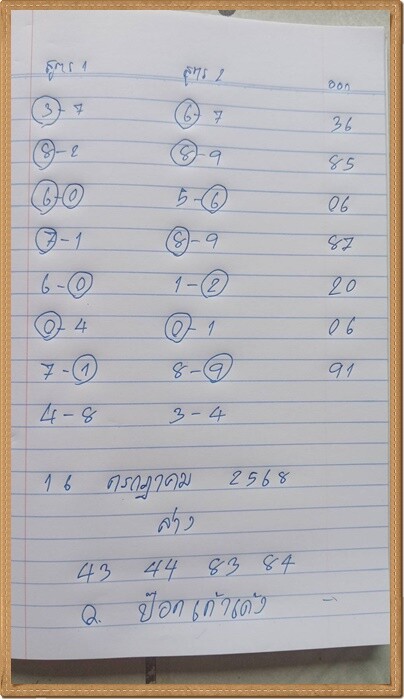 สูตร 1 สูตร 2 ออก
3-7 6-7 36
8-2 8-9 85
6-0 5-6 06
7-1 8-9 87
6-0 1-2 20
0-4 0-1 06
7-1 8-9 91
4-8 3-4
16 กรกฎาคม 2568
ล่าง
43 44 83 84
Q. ป๊อกเก้าเด้ง